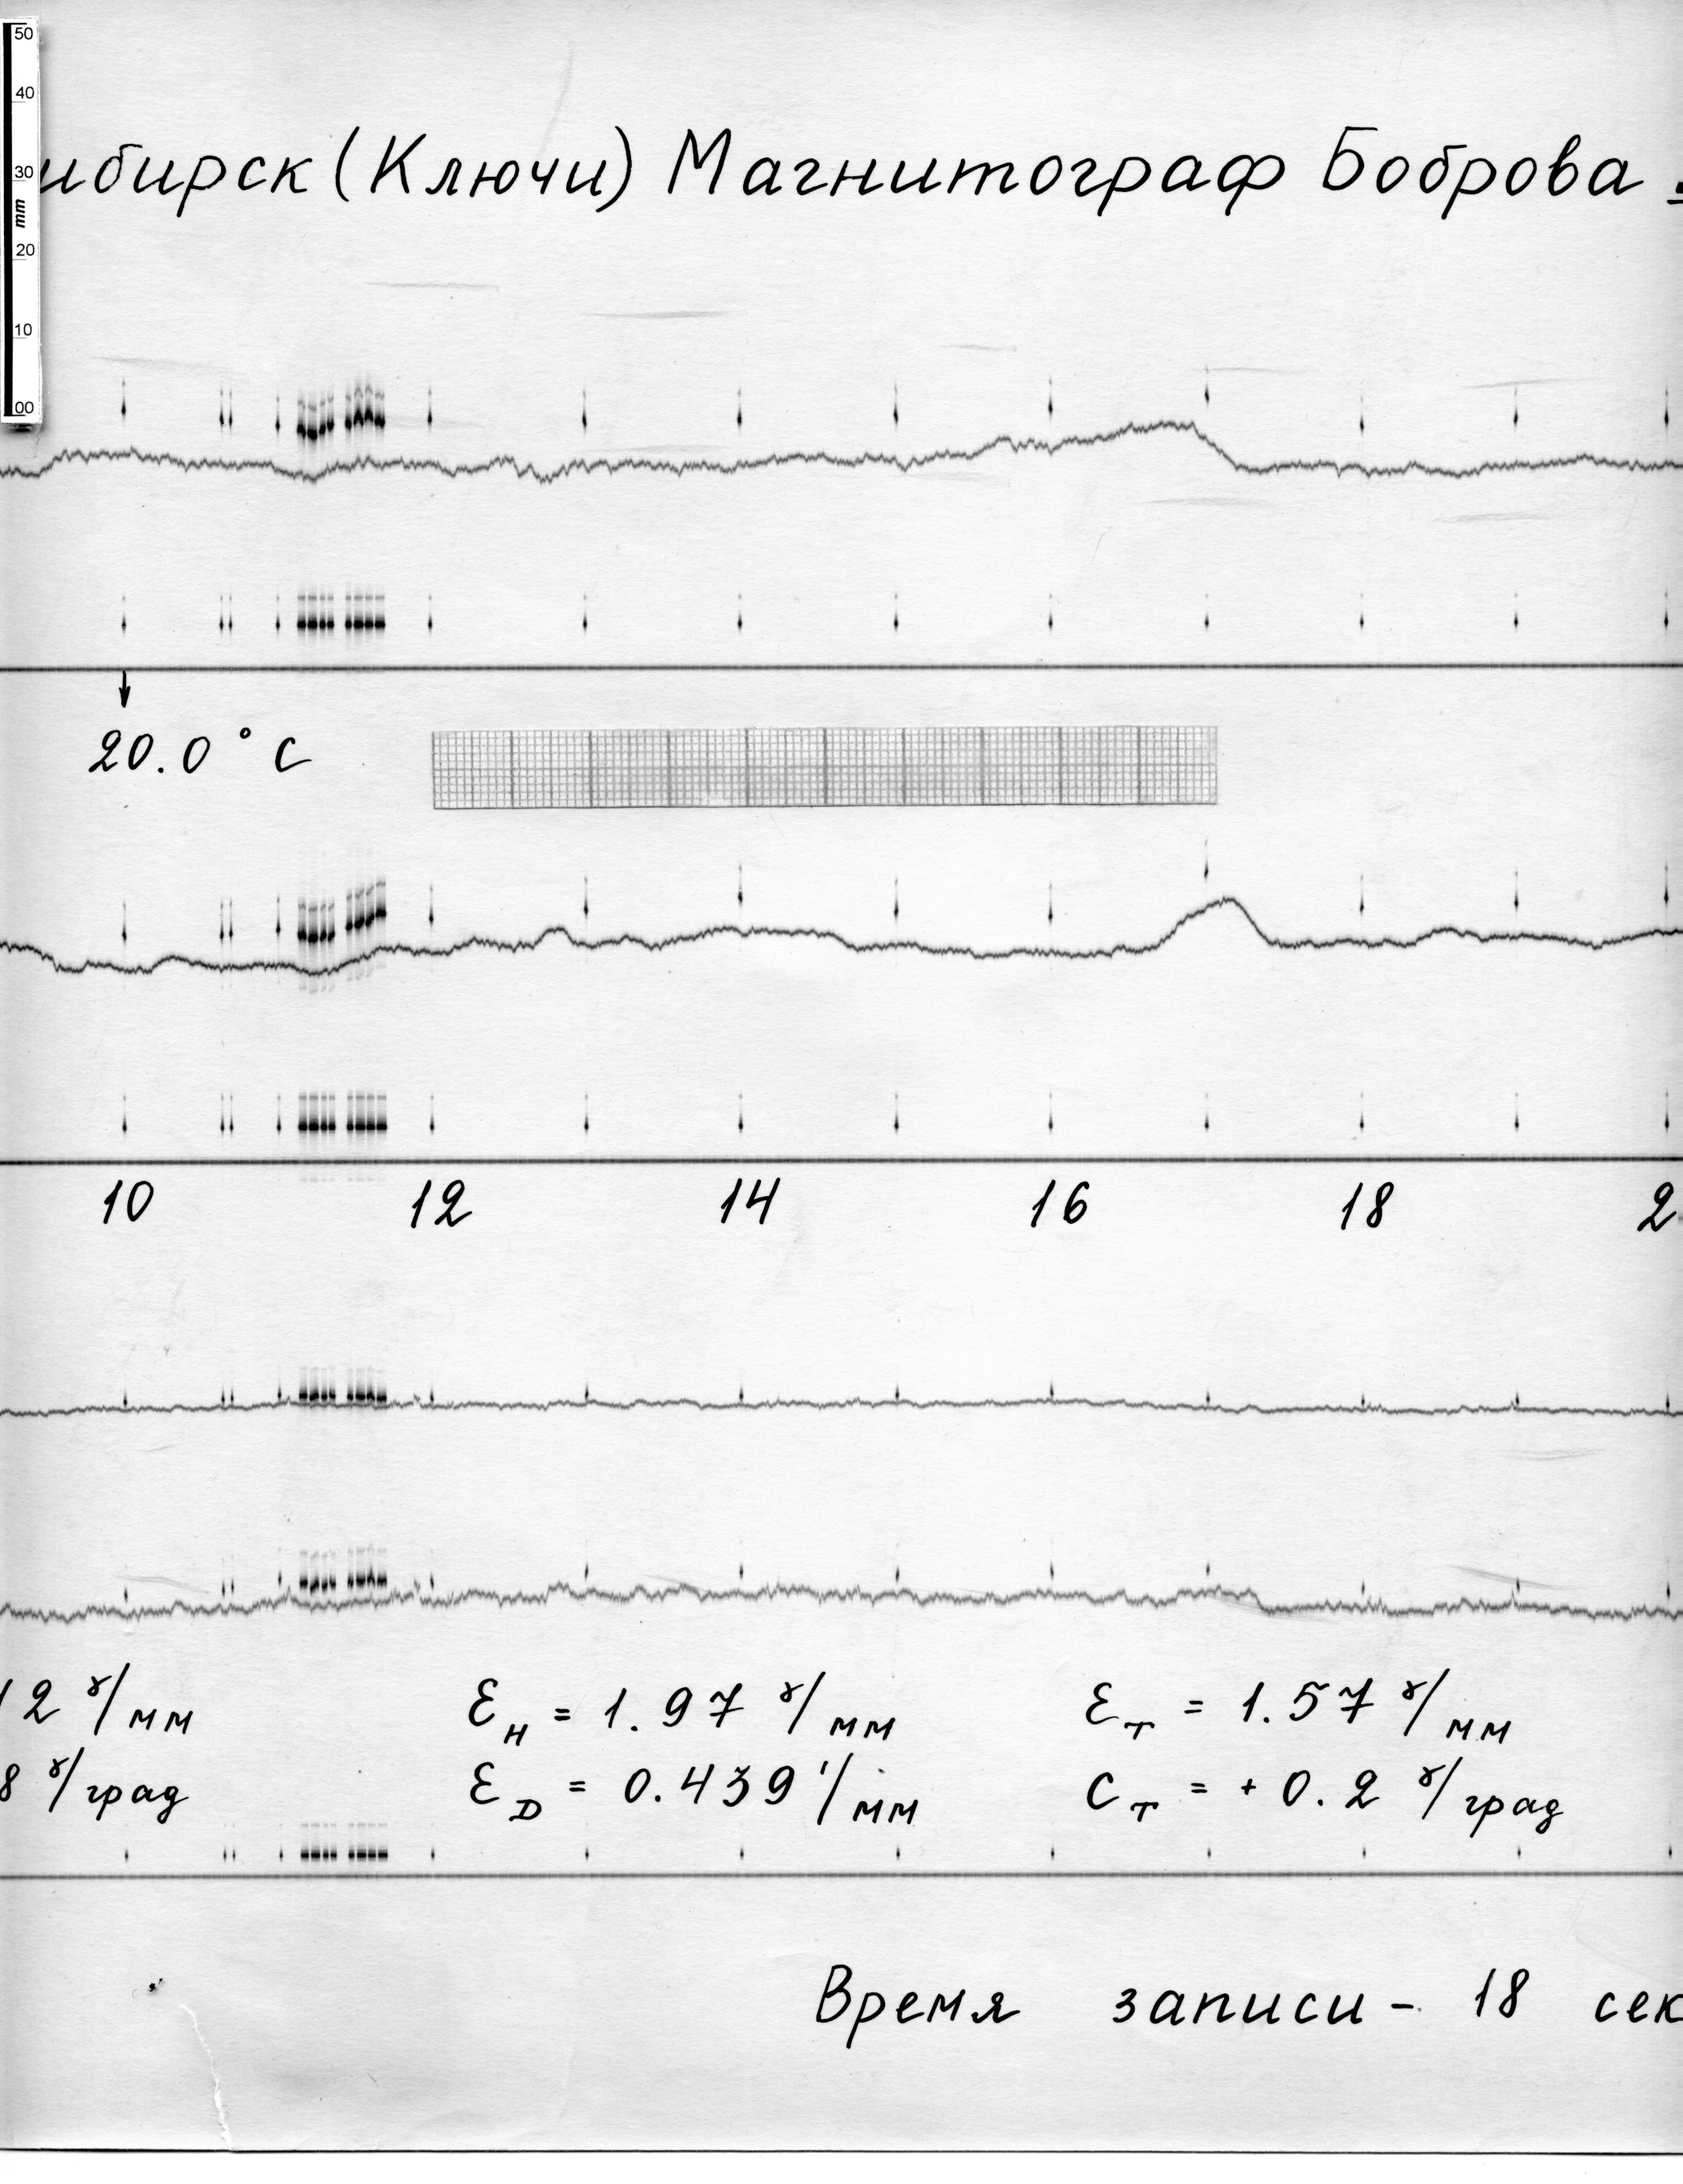 50
40
30
mm
20
10
00
ибирск (Ключи) Магнитограф Боброва
20.0 ° С
10 12 14 16 18 2
12 γ/мм Ɛн = 1.97 γ/мм Ɛт = 1.57 γ/мм
8 γ/град ƐD = 0.439 '/мм Ст = + 0.2 γ/град
Время записи - 18 сек